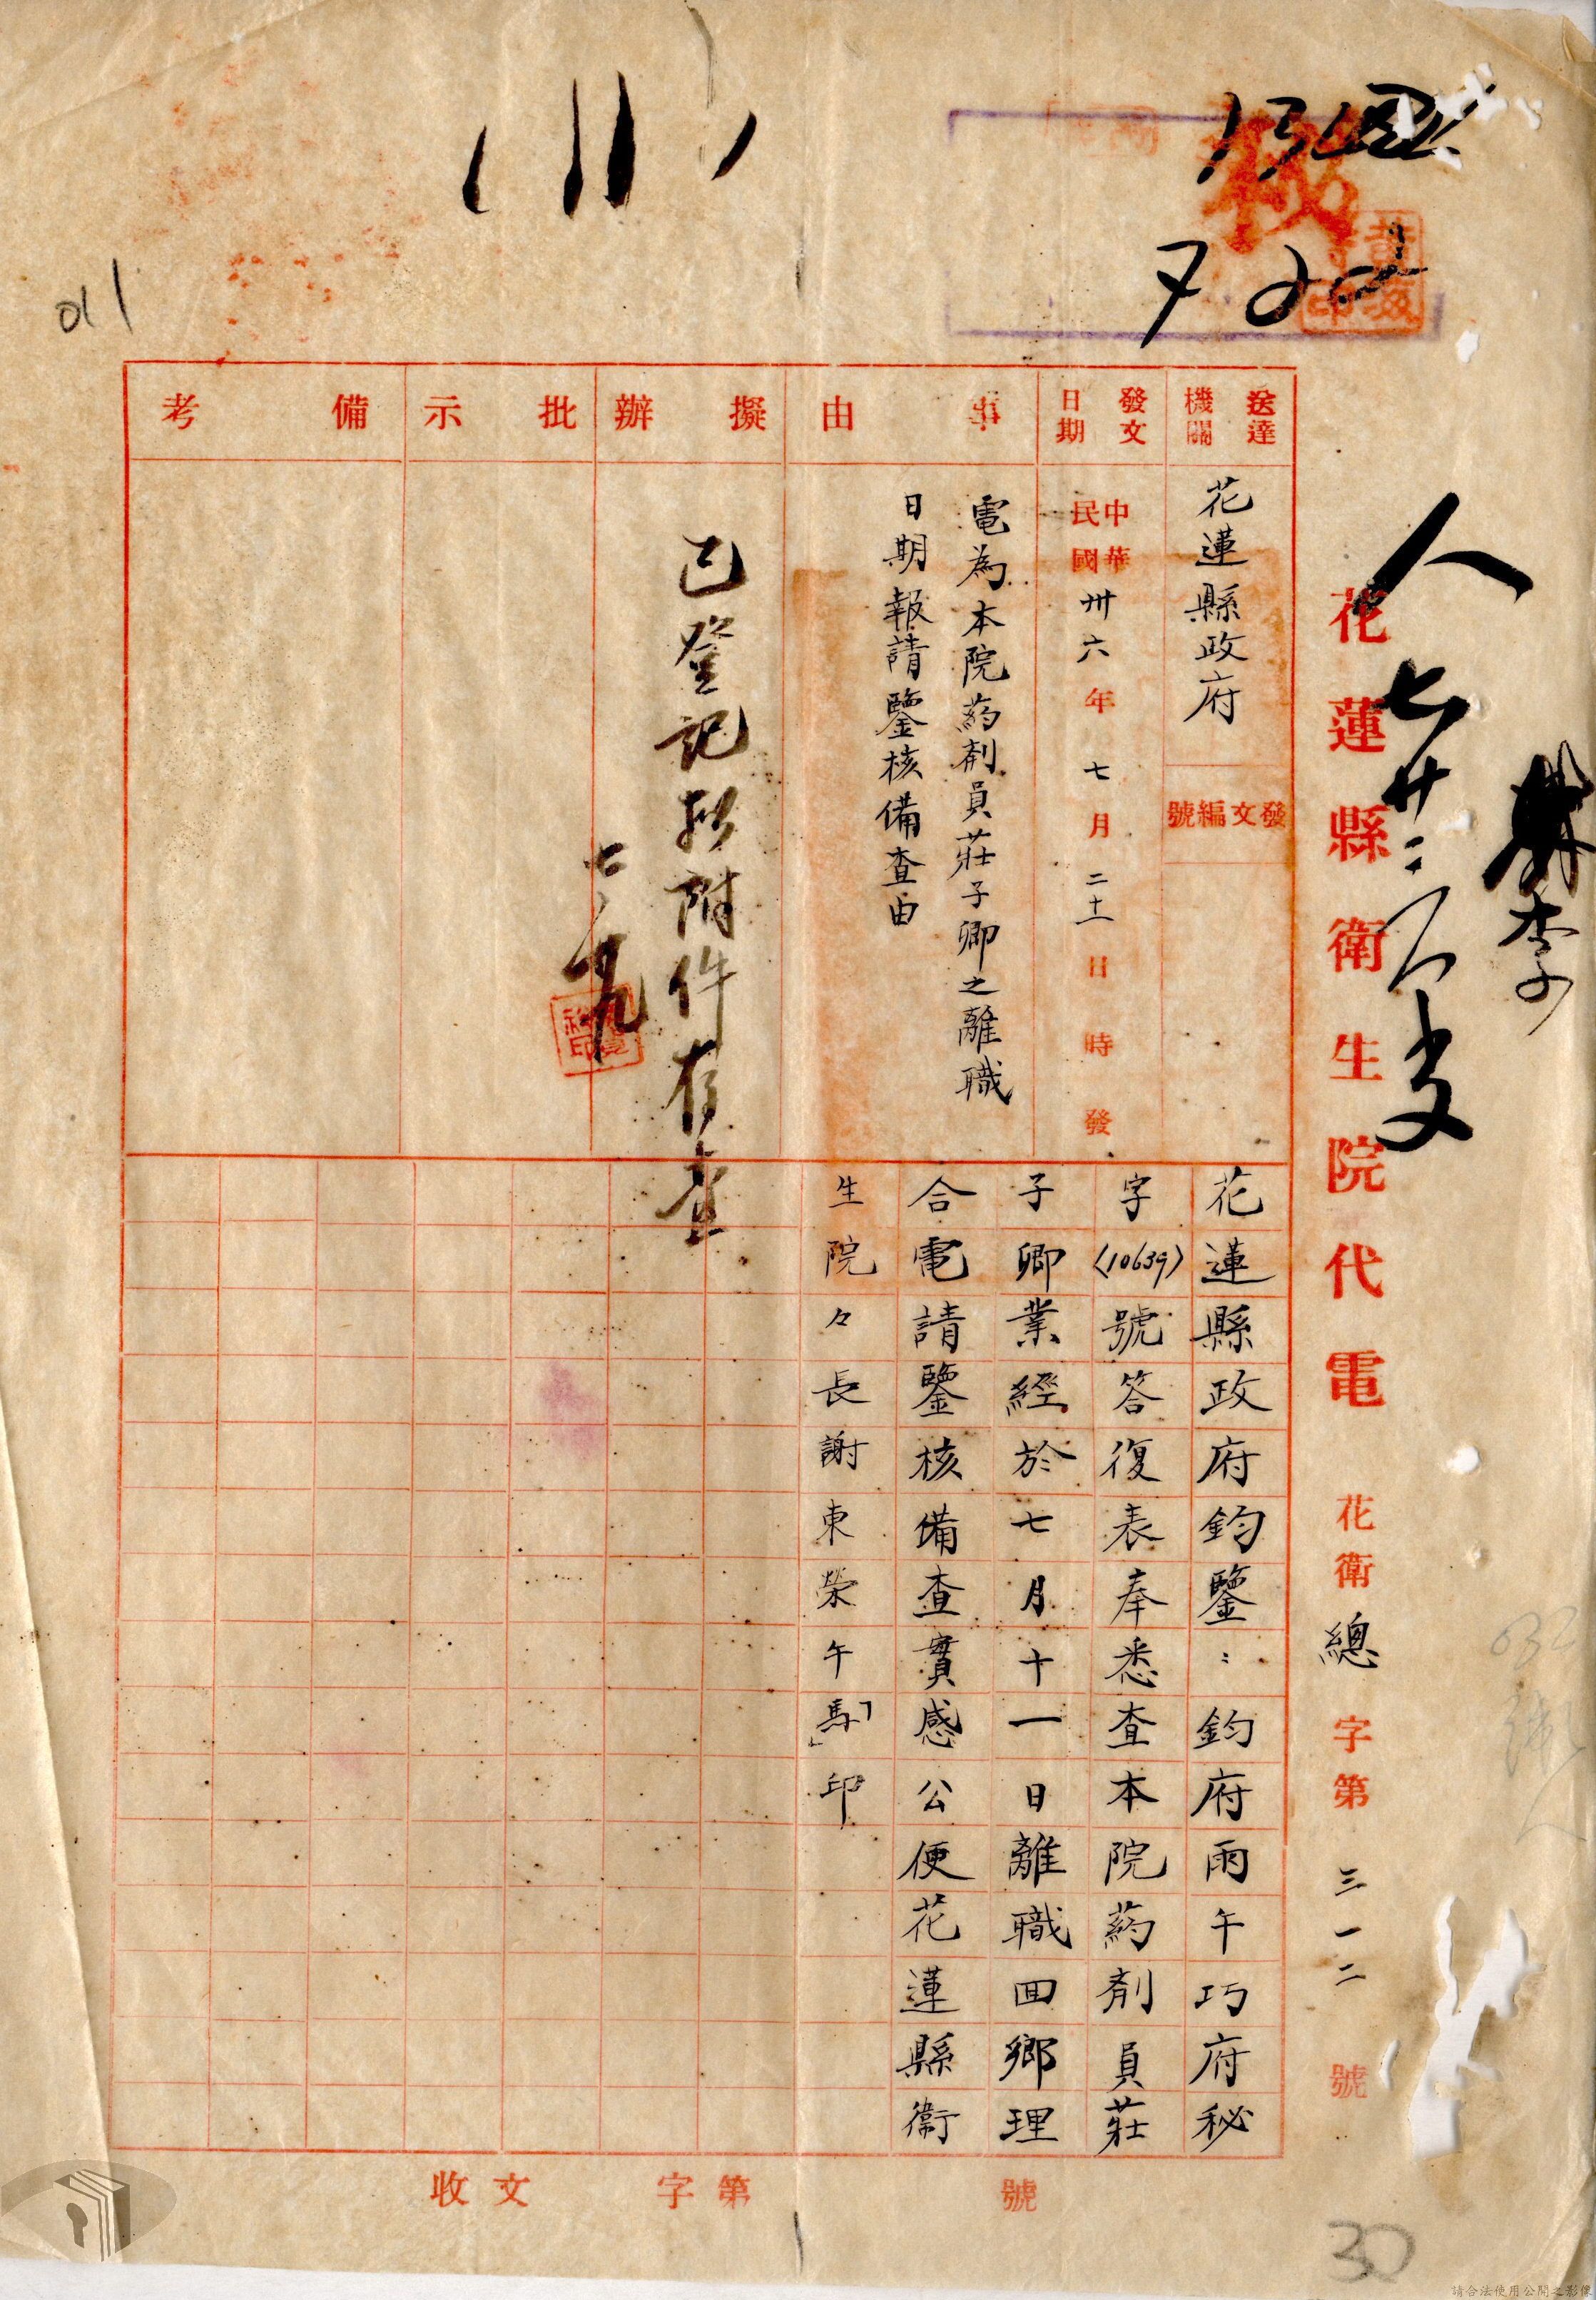 花蓮縣衛生院代電
花衛總字第三一二號
送達機關
花蓮縣政府
發文編號
發文日期
中華民國卅六年七月二十一日時發
事由
電為本院葯劑員莊子卿之離職
日期報請鑒核備查由
擬辦
已登記擬附件存查
批示
備考
花蓮縣政府鈞鑒:鈞府雨午巧府秘
字(10639)號答復表奉悉查本院葯劑員莊
子卿業經於七月十一日離職回鄉理
合電請鑒核備查實感公便花蓮縣衛
生院々長謝東榮午「馬」印
收文字第號
秘
人
七廿二
李
7 22
011
30
請合法使用公開之影像